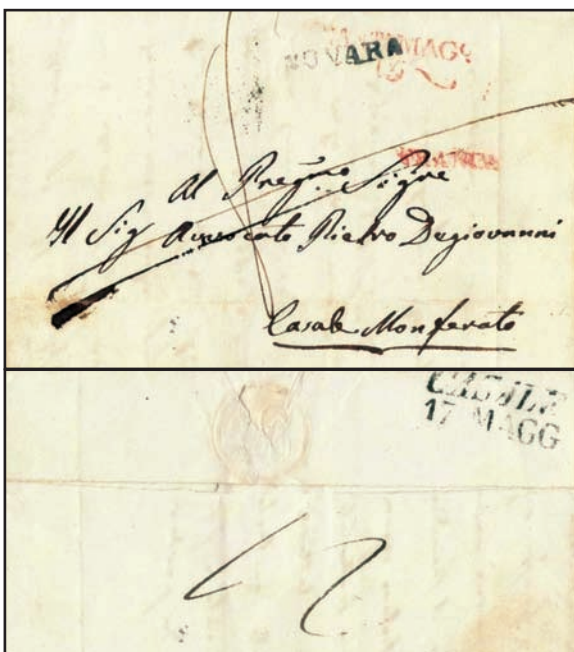 NOVARA
MAGG
Al Pregmo Sigre
Il Sig Avvocato Pietro Degiovanni
Casale Monferato
CASALE
17 MAGG